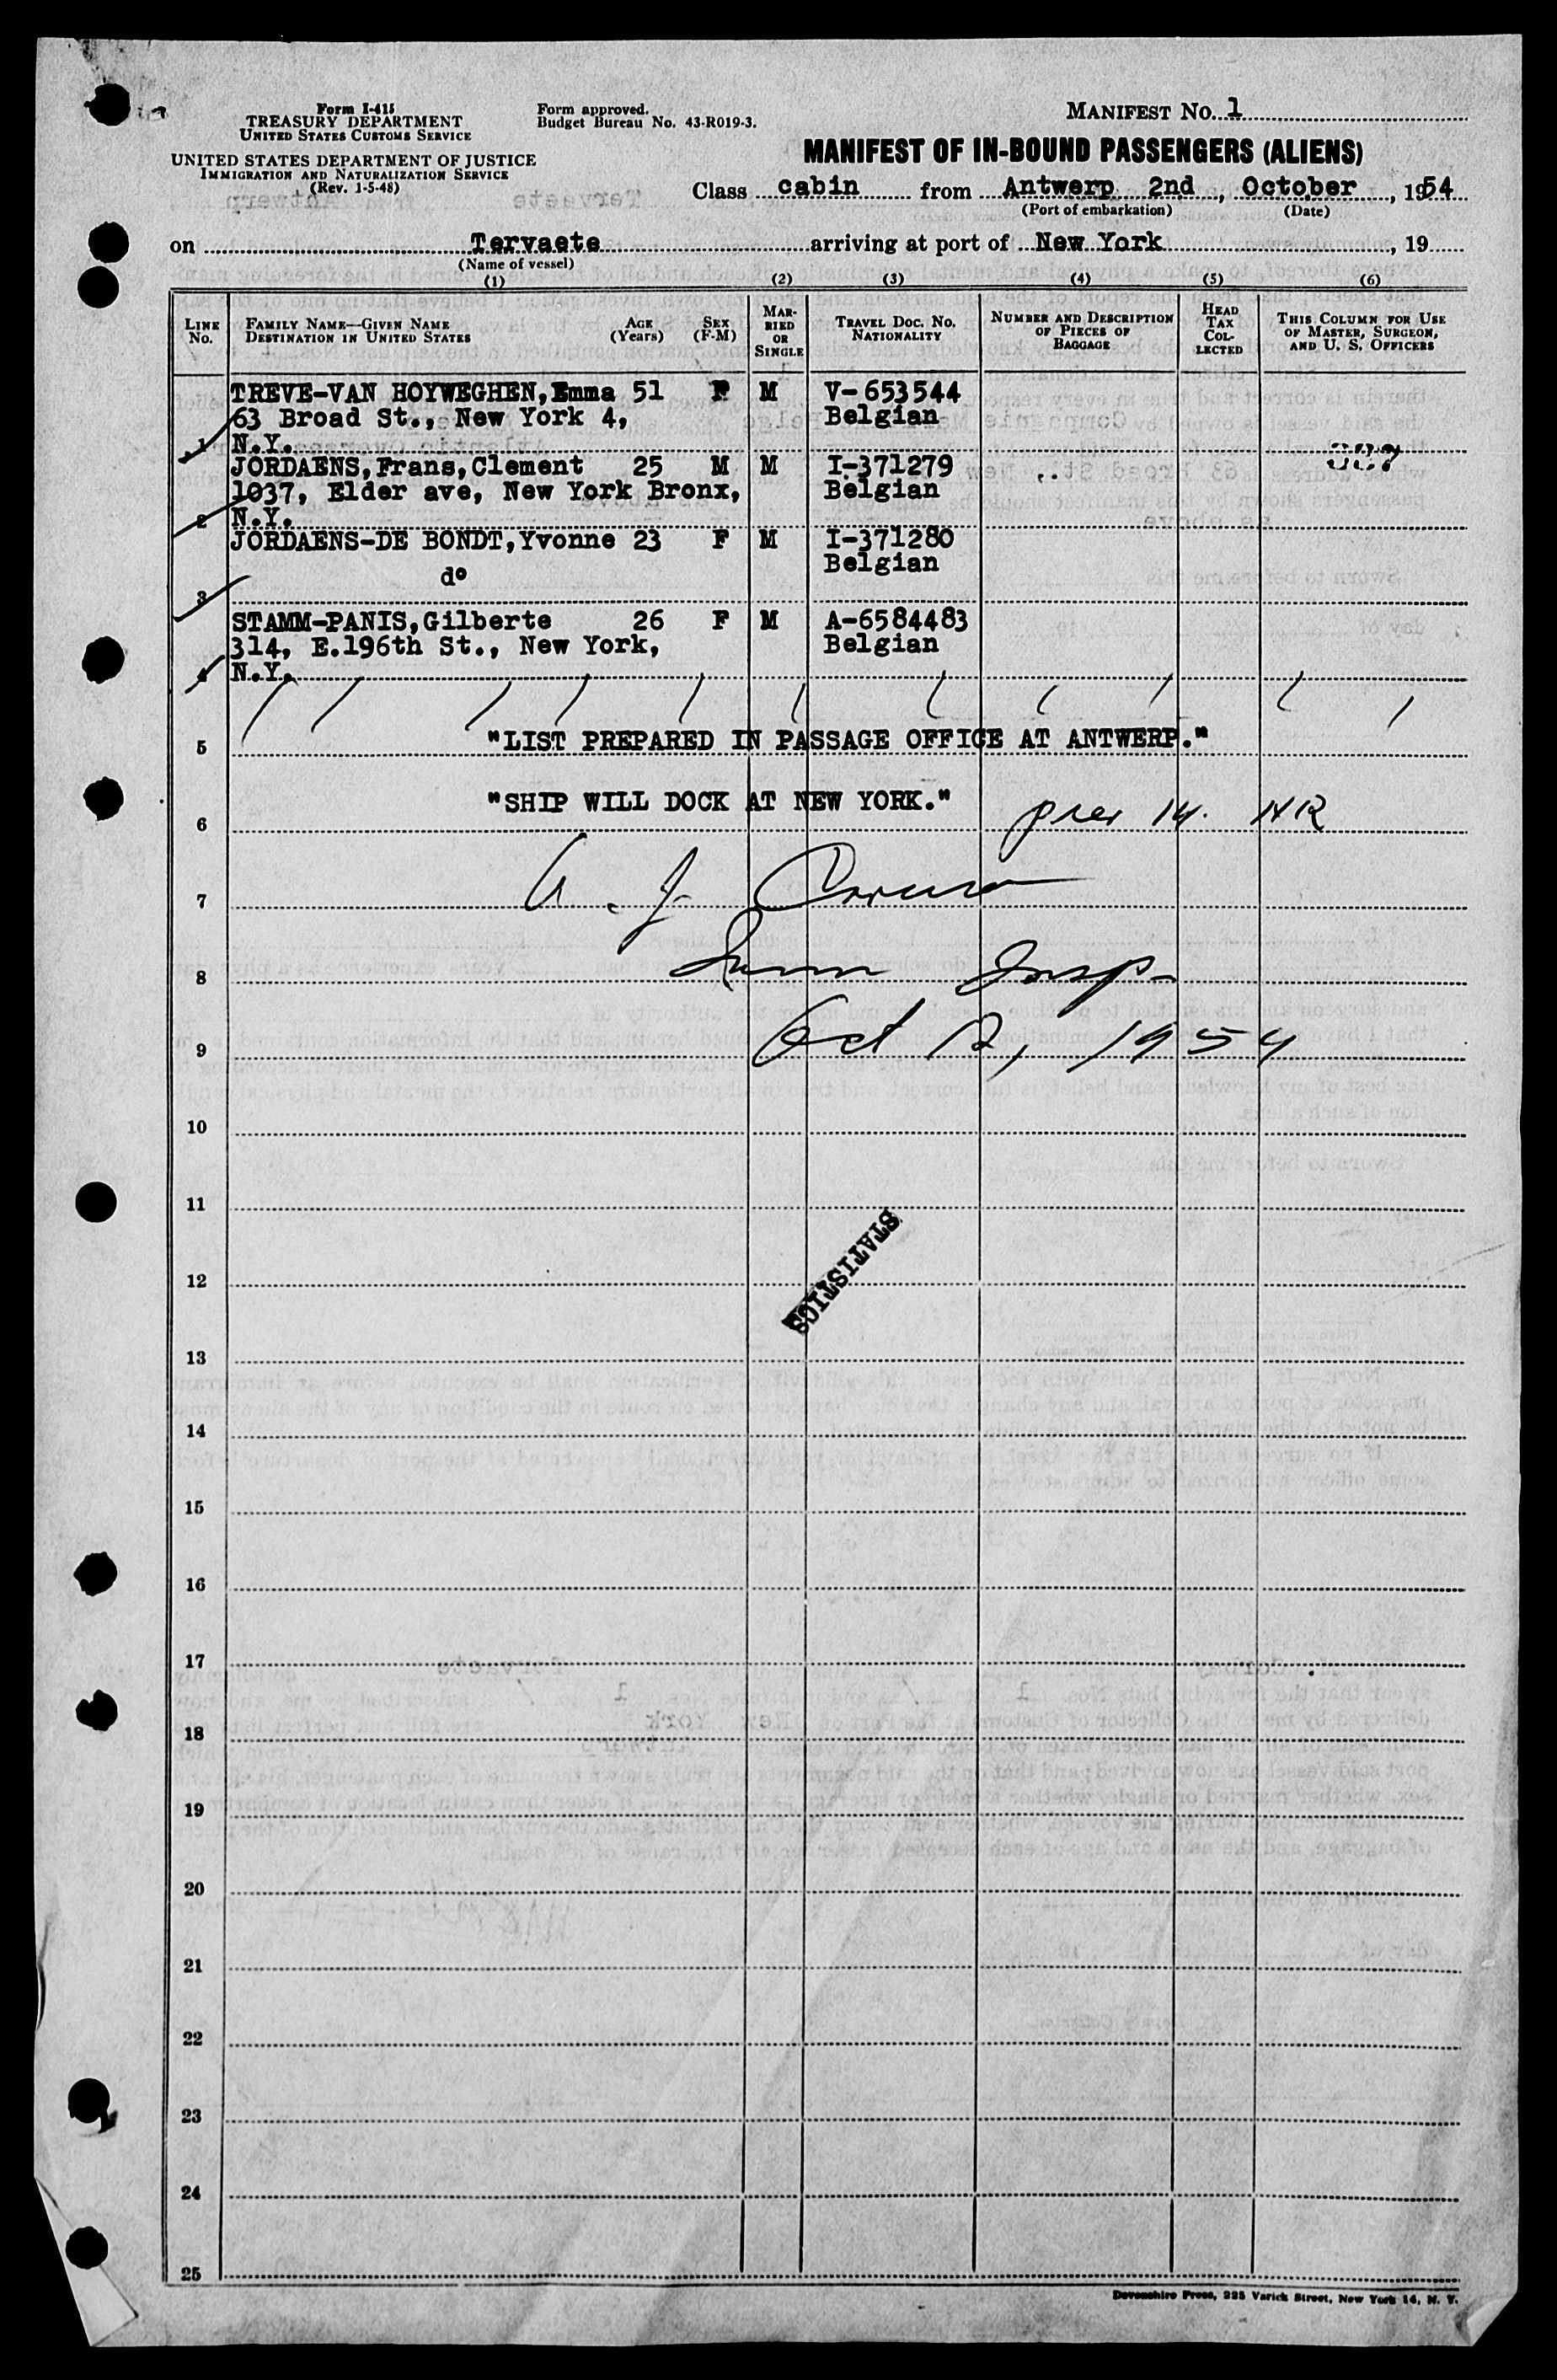 Form I-415
TREASURY DEPARTMENT
UNITED STATES CUSTOMS SERVICE
UNITED STATES DEPARTMENT OF JUSTICE
IMMIGRATION AND NATURALIZATION SERVICE
(Rev. 1-5-48)
Form approved.
Budget Bureau No. 43-R019-3.
MANIFEST NO. 1
MANIFEST OF IN-BOUND PASSENGERS (ALIENS)
Class cabin from Antwerp 2nd, October, 1954
(Port of embarkation) (Date)
on Tervaete arriving at port of New York, 19
(Name of vessel)
(1) (2) (3) (4) (5) (6)
LINE No. FAMILY NAME—GIVEN NAME DESTINATION IN UNITED STATES AGE (Years) SEX (F-M) MARRIED OR SINGLE TRAVEL DOC. NO. NATIONALITY NUMBER AND DESCRIPTION OF PIECES OF BAGGAGE HEAD TAX COLLECTED THIS COLUMN FOR USE OF MASTER, SURGEON, AND U. S. OFFICERS
TREVE-VAN HOYWEGHEN, Emma 51 F M V-653544
63 Broad St., New York 4, Belgian
1 N.Y.
JORDAENS, Frans, Clement 25 M M I-371279
1037, Elder ave, New York Bronx, Belgian
2 N.Y.
JORDAENS-DE BONDT, Yvonne 23 F M I-371280
Belgian
do
3
STAMM-PANIS, Gilberte 26 F M A-6584483
314, E.196th St., New York, Belgian
4 N.Y.
5 "LIST PREPARED IN PASSAGE OFFICE AT ANTWERP."
6 "SHIP WILL DOCK AT NEW YORK."
14.
7 A. J.
8 Imm Insp.
9 Oct 12, 1954
10
11
STATISTICS
12
13
14
15
16
17
18
19
20
21
22
23
24
25
Devonshire Press, 225 Varick Street, New York 14, N. Y.